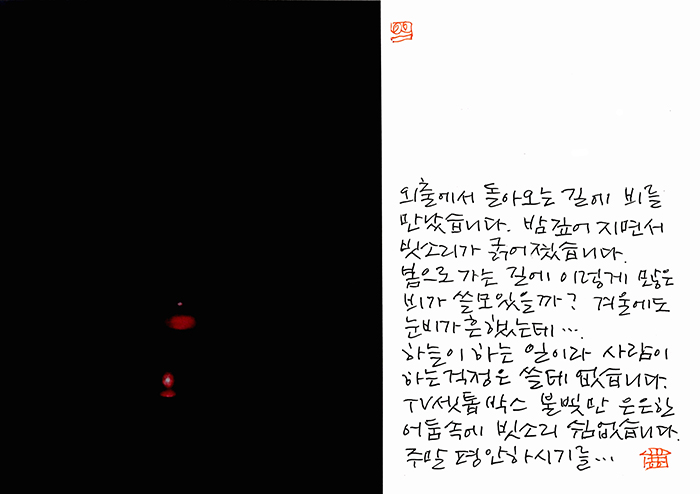 외출에서 돌아오는 길에 비를
만났습니다. 밤깊어 지면서
빗소리가 굵어졌습니다.
봄으로 가는 길에 이렇게 많은
비가 쓸모있을까? 겨울에도
눈비가 흔했는데….
하늘이 하는 일이라 사람이
하는걱정은 쓸데 없습니다.
TV셋톱박스 불빛만 은은한
어둠속에 빗소리 쉼없습니다.
주말 평안하시기를…